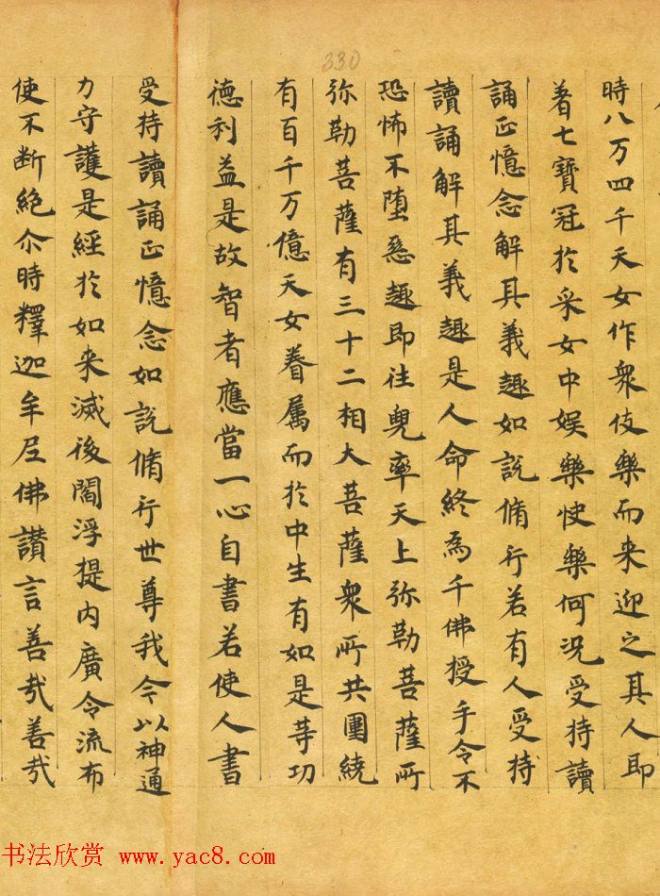 330
時八万四千天女作衆伎樂而来迎之其人即
著七寶冠於采女中娱樂快樂何況受持讀
誦正憶念解其義趣如說脩行若有人受持
讀誦解其義趣是人命終為千佛授手令不
恐怖不堕惡趣即往兜率天上弥勒菩薩所
弥勒菩薩有三十二相大菩薩衆所共圍繞
有百千万億天女眷属而於中生有如是等功
德利益是故智者應當一心自書若使人書
受持讀誦正憶念如說脩行世尊我今以神通
力守護是經於如来滅後閻浮提内廣令流布
使不断絶尒時釋迦牟尼佛讚言善哉善哉
书法欣赏 www.yac8.com